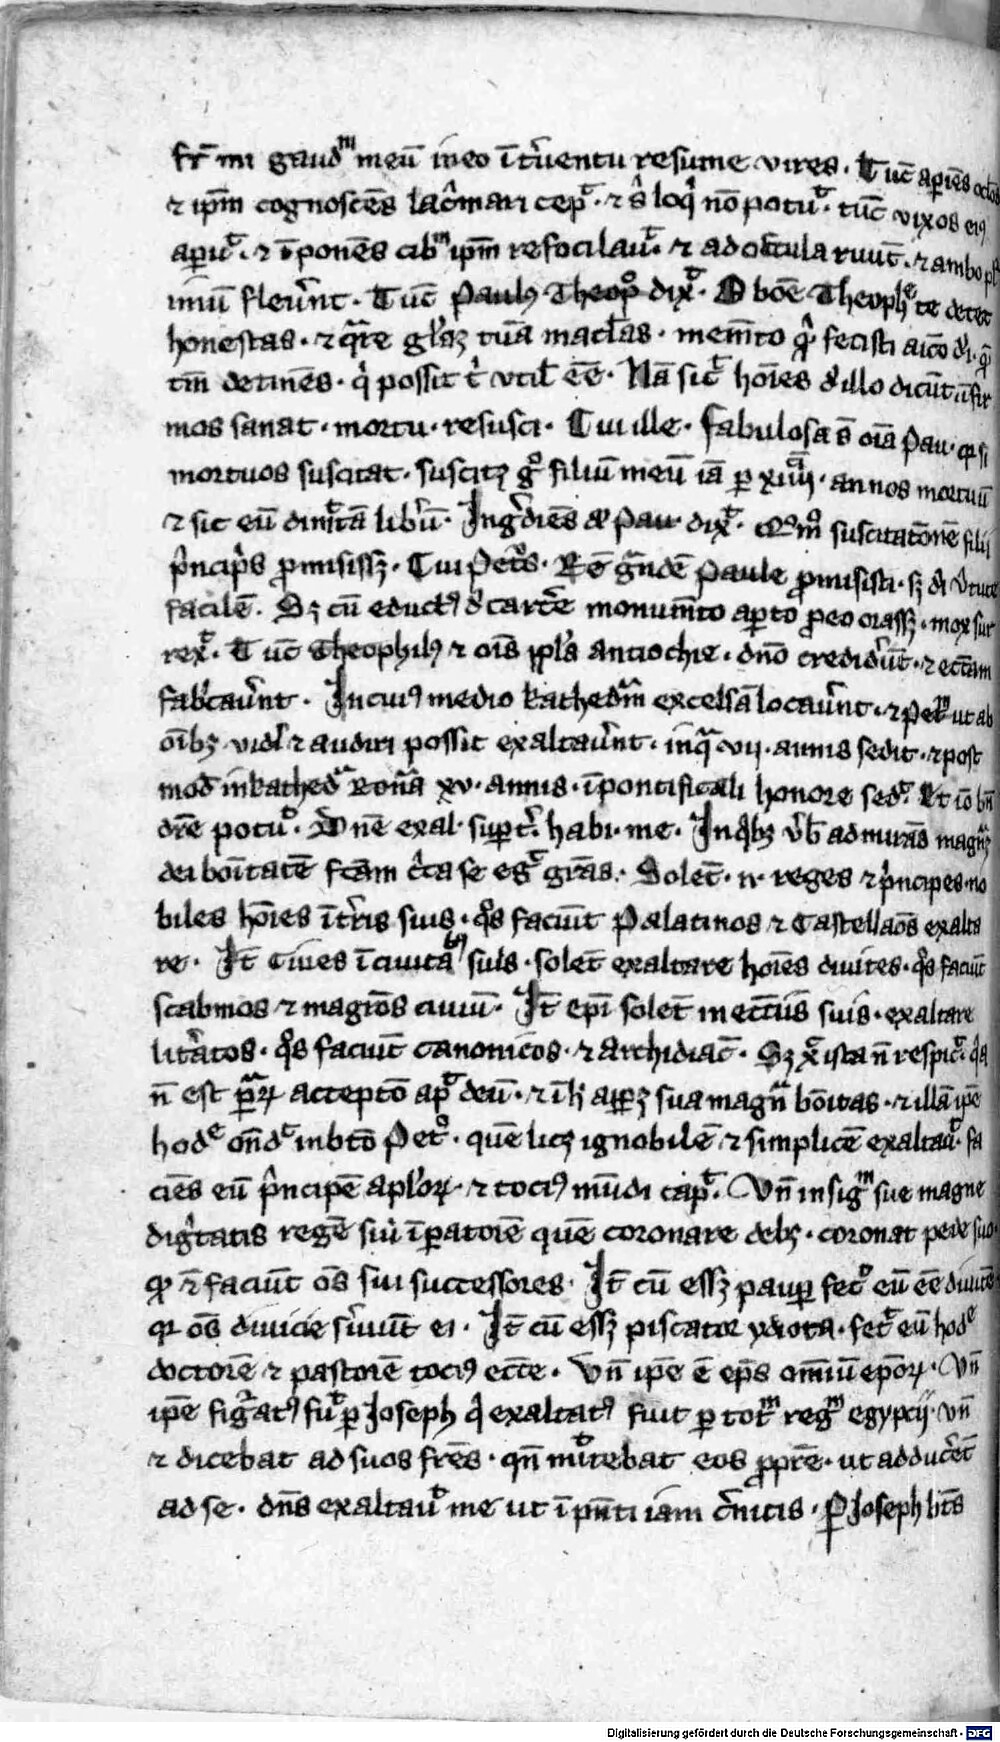 fr̄ mi gaudm meū in eo īt'uentu resume vires . Tūc apiēs oclos
⁊ ipm̄ cognoscēs lac'mari cep̄t . ⁊ s' loqi nō potuit . tūc vix os ei9
apuit . ⁊ īponēs cibm ipm̄ refocilauit . ⁊ ad oscula ruūt . ⁊ ambo pl
imiū fleūnt . Tūc Paul9 Theopo dixt . O bōe Theophe te detet
honestas . ⁊ qare gl'az tuā maclās . mem̄to q' fecisti aīco d'i . q
tm̄ detinēs . q' possit t' vtil' ēē . Nā sict hoīes d' illo dicūt īfir
mos sanat . mortu . resusci . Cui ille . fabulosa s̄ oīa pau . q si
mortuos suscitat . suscitz go filiū meū iā p xiiij . annos mortuū
⁊ sic eū dimitā lib'ū . Ingdiēs Pau dixt . Qomo suscitatōnē filij
p'ncip's pmisissz . Cui Pet's . Rē gandē paule pmisisti . sz di v'tute
facilē . Sz cū educt9 d' carcē monum̄to apto peo orassz . mox sur
rext . Tūc Theophil9 ⁊ oīs ppl's antiochie . dn̄o credid'ūt . ⁊ ecc'am
fabcaūnt . In cui9 medio kathedam excelsā locaūnt . ⁊ Pet ut ab
oībz vid'i ⁊ audiri possit exaltaūnt . in qa vij . annis sedit . ⁊ post
mod in kathed'a Romāa xv . annis . ī pontificali honore sedt . Et iō bn̄
drē potuit . Dn̄e exal . sup t'. habi . me . In qbz v'b' admirās magnaz
dei boītatē fcām c'ca se egt grās . Solēt . n . reges ⁊ p'ncipes . no
biles hoīes ī t'ris suis . qos faciūt Palatinos ⁊ Castellaōs exalta
re . It̄ Ciues ī ciuitabz suis . solēt exaltare hoīes diuites . qos faciūt
scabinos ⁊ magrōs ciuiū . It̄ epī solēt in ecc'iis suis . exaltare
lit'atos . qos faciūt canonicos . ⁊ archidiacō . Sz x' ista n̄ respicit . qa
n̄ est psarz acceptō apt deū . ⁊ ī h' apz sua magna bōitas . ⁊ illā ipē
hode on̄dt in btō Pet° . quē licz ignobilē ⁊ simplicē exaltauit . fa
ciēs eū p'ncipē aplorz . ⁊ toci9 mūdi capt . Vn̄ in sigm sue magne
dig'tatis regē siu īpatorē quē coronare debz . coronat pede suo
q ⁊ faciūt oēs sui successores . It̄ cū essz paup fect eū ēē diuitē
q oēs diuicie s'uiūt ei . It̄ cū essz piscator ydiota . fect eū hode
doctorē ⁊ pastorē toci9 ecc'e . Vn̄ ipē ē ep̄s omniū eporz . Vn̄
ipē figat9 fuit p Joseph q' exaltat9 fuit p totm regm egypcij . vn̄
⁊ dicebat ad suos frēs . qn̄ mittebat eos pprē . ut adducēt
ad se . dn̄s exaltauit me ut ī pn̄ti iam c'nitis . P Joseph btūs
Digitalisierung gefördert durch die Deutsche Forschungsgemeinschaft - DFG